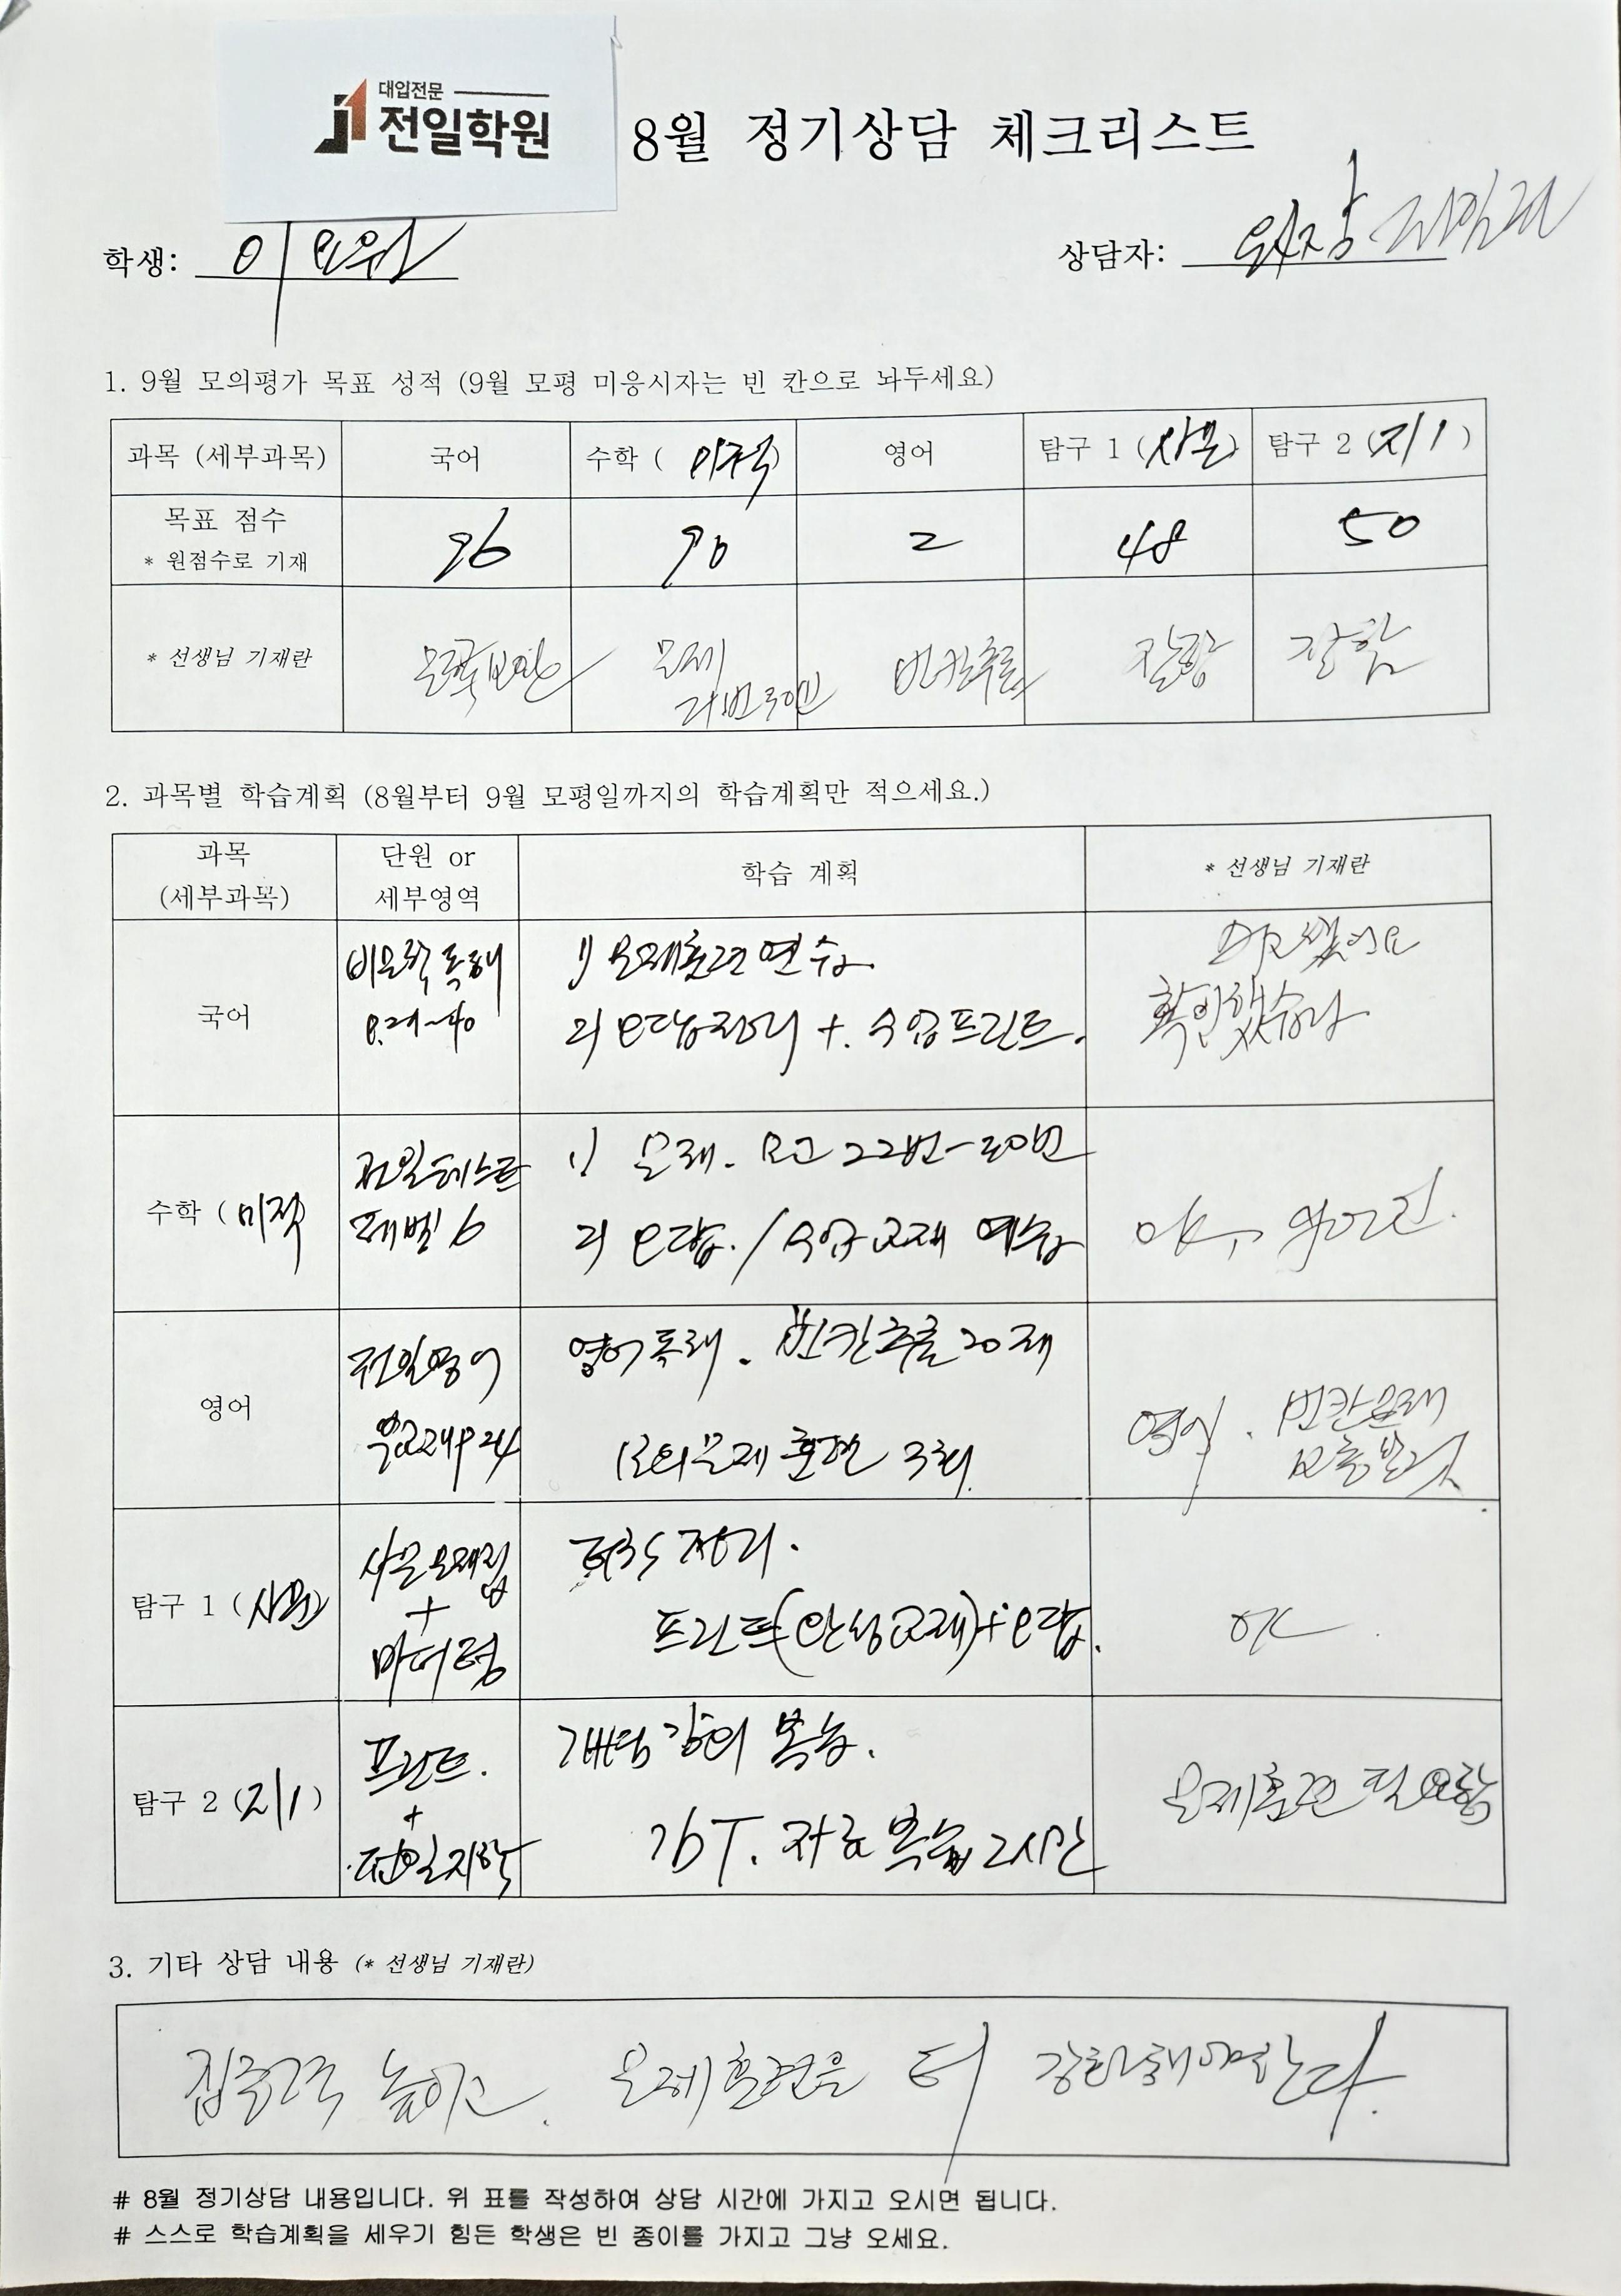 대입전문
전일학원
8월 정기상담 체크리스트
학생: 이요원
상담자: 원장
1. 9월 모의평가 목표 성적 (9월 모평 미응시자는 빈 칸으로 놔두세요)
과목 (세부과목) 국어 수학 ( 미적) 영어 탐구 1 (사문) 탐구 2 (지1)
목표 점수 96 90 2 48 50
* 원점수로 기재
* 선생님 기재란 문제 빈칸추론 잘함 잘함
2. 과목별 학습계획 (8월부터 9월 모평일까지의 학습계획만 적으세요.)
과목 단원 or 학습 계획 * 선생님 기재란
(세부과목) 세부영역
국어
비문학 독해
P.21~40
1) 문제훈련 연습.
2) 오답정리 + 수업프린트.
확인했습니다
수학 (미적
전일테스트
레벨 6
1) 문제. 모고 22번-30번
2) 오답. / 수업교재 예습
영어
전일영어
P24
영어독해. 빈칸추론 20제
모의문제 훈련 3회.
영어. 빈칸문제
탐구 1 (사문)
사문문제집
+
마더텅
정리.
프린트(완성교재)+오답.
OK.
탐구 2 (지1)
프린트.
+
전일지학
개념강의 복습.
김T. 자료 복습 2시간
문제훈련 필요함
3. 기타 상담 내용 (* 선생님 기재란)
집중력 높이고. 문제훈련을 더 강화해야한다.
# 8월 정기상담 내용입니다. 위 표를 작성하여 상담 시간에 가지고 오시면 됩니다.
# 스스로 학습계획을 세우기 힘든 학생은 빈 종이를 가지고 그냥 오세요.